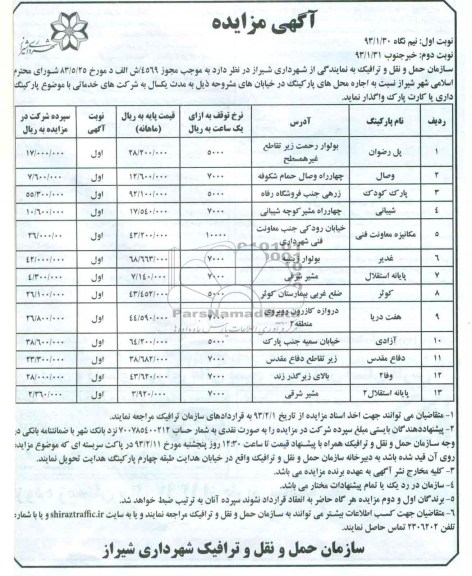 آگهی مزایده
نوبت اول: نیم نگاه ۹۳/۱/۳۰
نوبت دوم: خبرجنوب ۹۳/۱/۳۱
سازمان حمل و نقل و ترافیک به نمایندگی از شهرداری شیراز در نظر دارد به موجب مجوز ۴۵۶۹/ش الف د مورخ ۸۳/۵/۲۵ شورای محترم
اسلامی شهر شیراز نسبت به اجاره محل های پارکینگ در خیابان های مشروحه ذیل به مدت یکسال به شرکت های خدماتی با موضوع پارکینگ
داری یا کارت پارک واگذار نماید.
ردیف نام پارکینگ آدرس نرخ توقف به ازای یک ساعت به ریال قیمت پایه به ریال (ماهانه) نوبت آگهی سپرده شرکت در مزایده به ریال
۱ پل رضوان بولوار رحمت زیر تقاطع غیرهمسطح ۵۰۰۰ ۲۸/۲۰۰/۰۰۰ اول ۱۷/۰۰۰/۰۰۰
۲ وصال چهارراه وصال حمام شکوفه ۷۰۰۰ ۱۲/۶۰۰/۰۰۰ اول ۷/۶۰۰/۰۰۰
۳ پارک کودک زرهی جنب فروشگاه رفاه ۵۰۰۰ ۹۲/۱۰۰/۰۰۰ اول ۵۵/۳۰۰/۰۰۰
۴ شیبانی چهارراه مشیر کوچه شیبانی ۷۰۰۰ ۱۷/۵۴۰/۰۰۰ اول ۱۰/۶۰۰/۰۰۰
۵ مکانیزه معاونت فنی خیابان رودکی جنب معاونت فنی شهرداری ۱۰۰۰۰ ۴۳/۲۰۰/۰۰۰ اول ۲۶/۰۰۰/۰۰
۶ غدیر بولوار ۷۰۰۰ ۶۸/۶۶۳/۰۰۰ اول ۴۲/۰۰۰/۰۰۰
۷ پایانه استقلال مشیر شرقی ۷۰۰۰ ۷/۱۴۰/۰۰۰ اول ۴/۳۰۰/۰۰۰
۸ کوثر ضلع غربی بیمارستان کوثر ۵۰۰۰ ۴۳/۴۵۲/۰۰۰ اول ۲۶/۱۰۰/۰۰۰
۹ هفت دریا دروازه کازرون روبروی منطقه۲ ۴۴/۵۹۰/۰۰۰ اول ۲۶/۸۰۰/۰۰۰
۱۰ آزادی خیابان سمیه جنب پارک ۵۰۰۰ ۶۴/۲۰۰/۰۰۰ اول ۳۸/۶۰۰/۰۰۰
۱۱ دفاع مقدس زیر تقاطع دفاع مقدس ۷۰۰۰ ۳۸/۶۸۲/۰۰۰ اول ۲۳/۳۰۰/۰۰۰
۱۲ وفا۲ بالای زیرگذر زند ۷۰۰۰ ۴۳/۶۲۰/۰۰۰ اول ۲۸/۰۰۰/۰۰۰
۱۳ پایانه استقلال۲ مشیر شرقی ۷۰۰۰ ۳/۹۲۰/۰۰۰ اول ۲/۳۶۰/۰۰۰
۱- متقاضیان می توانند جهت اخذ اسناد مزایده از تاریخ ۹۳/۲/۱ به قراردادهای سازمان ترافیک مراجعه نمایند.
۲- پیشنهاددهندگان بایستی مبلغ سپرده شرکت در مزایده را به صورت نقدی به شماره حساب ۷۰۰۷۸۵۴۰۰۲۱۲ نزد بانک شهر یا ضمانتنامه بانکی در
وجه سازمان حمل و نقل و ترافیک همراه با پیشنهاد قیمت تا ساعت ۱۲:۳۰ روز پنجشنبه مورخ ۹۳/۲/۱۱ در پاکت سربسته ای که موضوع مزایده
روی آن قید شده باشد به دبیرخانه سازمان حمل و نقل و ترافیک واقع در خیابان هدایت طبقه چهارم پارکینگ هدایت تحویل نمایند.
۳- کلیه مخارج نشر آگهی به عهده برنده مزایده می باشد.
۴- سازمان در رد یک یا تمام پیشنهادات مختار می باشد.
۵- برندگان اول و دوم مزایده هر گاه حاضر به انعقاد قرارداد نشوند سپرده آنان به ترتیب ضبط خواهد شد.
۶- متقاضیان جهت کسب اطلاعات بیشتر می توانند به سازمان حمل و نقل و ترافیک مراجعه نمایند و یا به سایت shiraztraffic.ir و یا با شماره
تلفن ۲۳۰۶۲۰۲ تماس حاصل نمایند.
سازمان حمل و نقل و ترافیک شهرداری شیراز